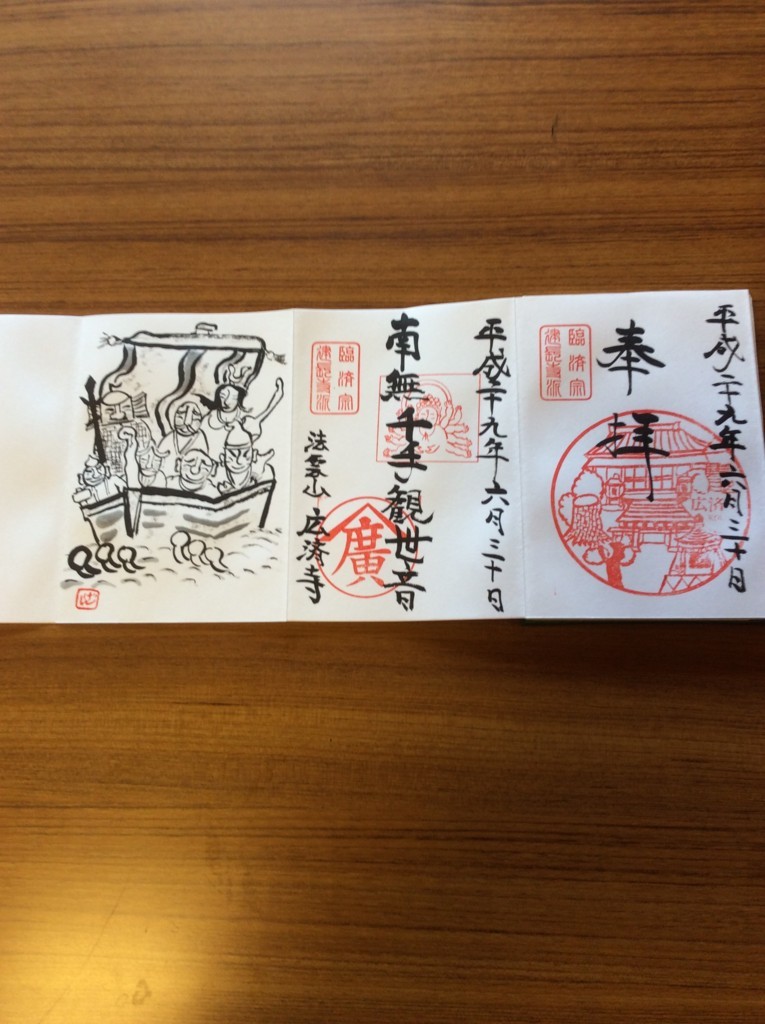 平成二十九年六月三十日
奉拝
臨済宗
建長寺派
広済
平成二十九年六月三十日
南無千手観世音
臨済宗
建長寺派
廣
法雲山 広済寺